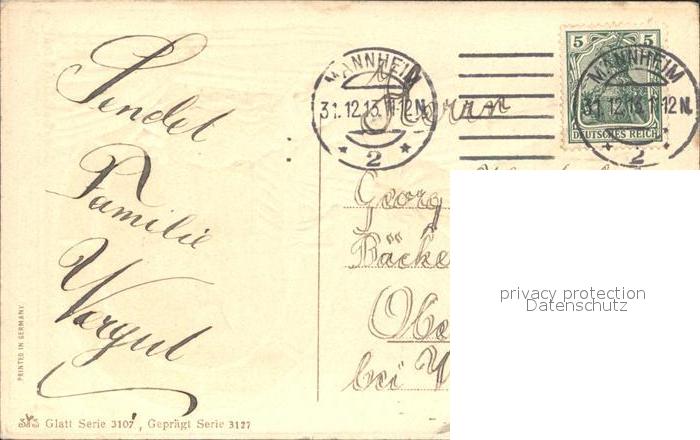 Sendet
Familie
PRINTED IN GERMANY
Glatt Serie 3107, Geprägt Serie 3127
MANNHEIM
31.12.13. 11-12 N.
* 2 *
5 5
DEUTSCHES REICH
MANNHEIM
31.12.13. 11-12 N.
* 2 *
Herrn
Georg
Bäcke
Obe
bei
privacy protection
Datenschutz